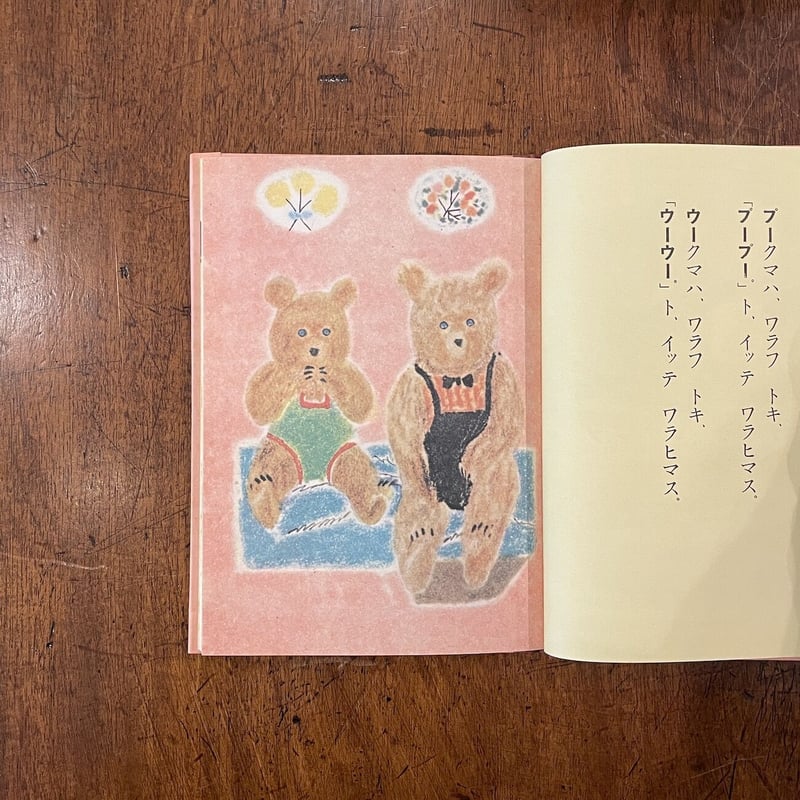 プークマハ、ワラフ　トキ、
「プープー」。ト、イッテ　ワラヒマス。
ウークマハ、ワラフ　トキ、
「ウーウー」。ト、イッテ　ワラヒマス。